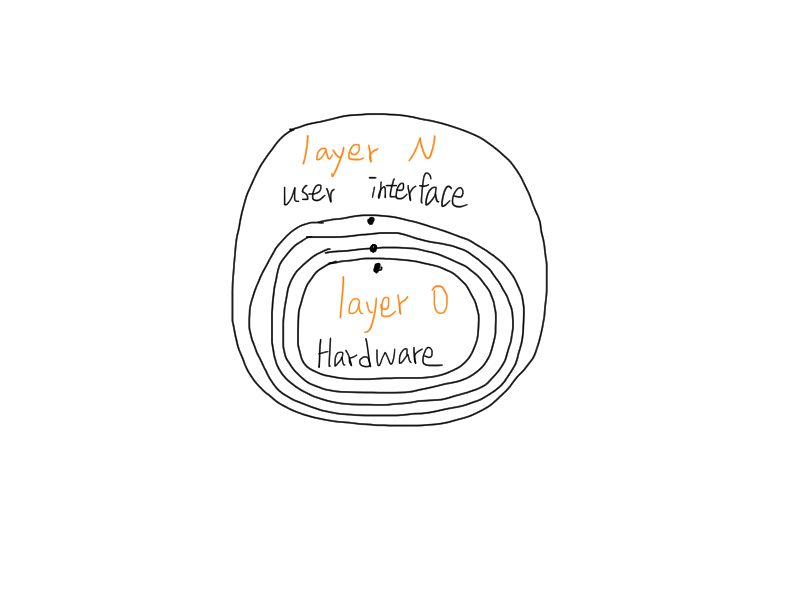 layer N
user interface
layer 0
Hardware